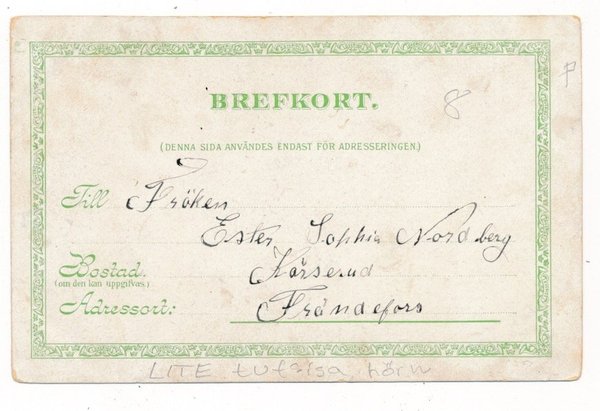 BREFKORT.
8
(DENNA SIDA ANVÄNDES ENDAST FÖR ADRESSERINGEN.)
Till Fröken
Ester Sophia Nordberg
Bostad. Hårserud
(om den kan uppgifvas.)
Adressort: Frändefors
LITE hörn